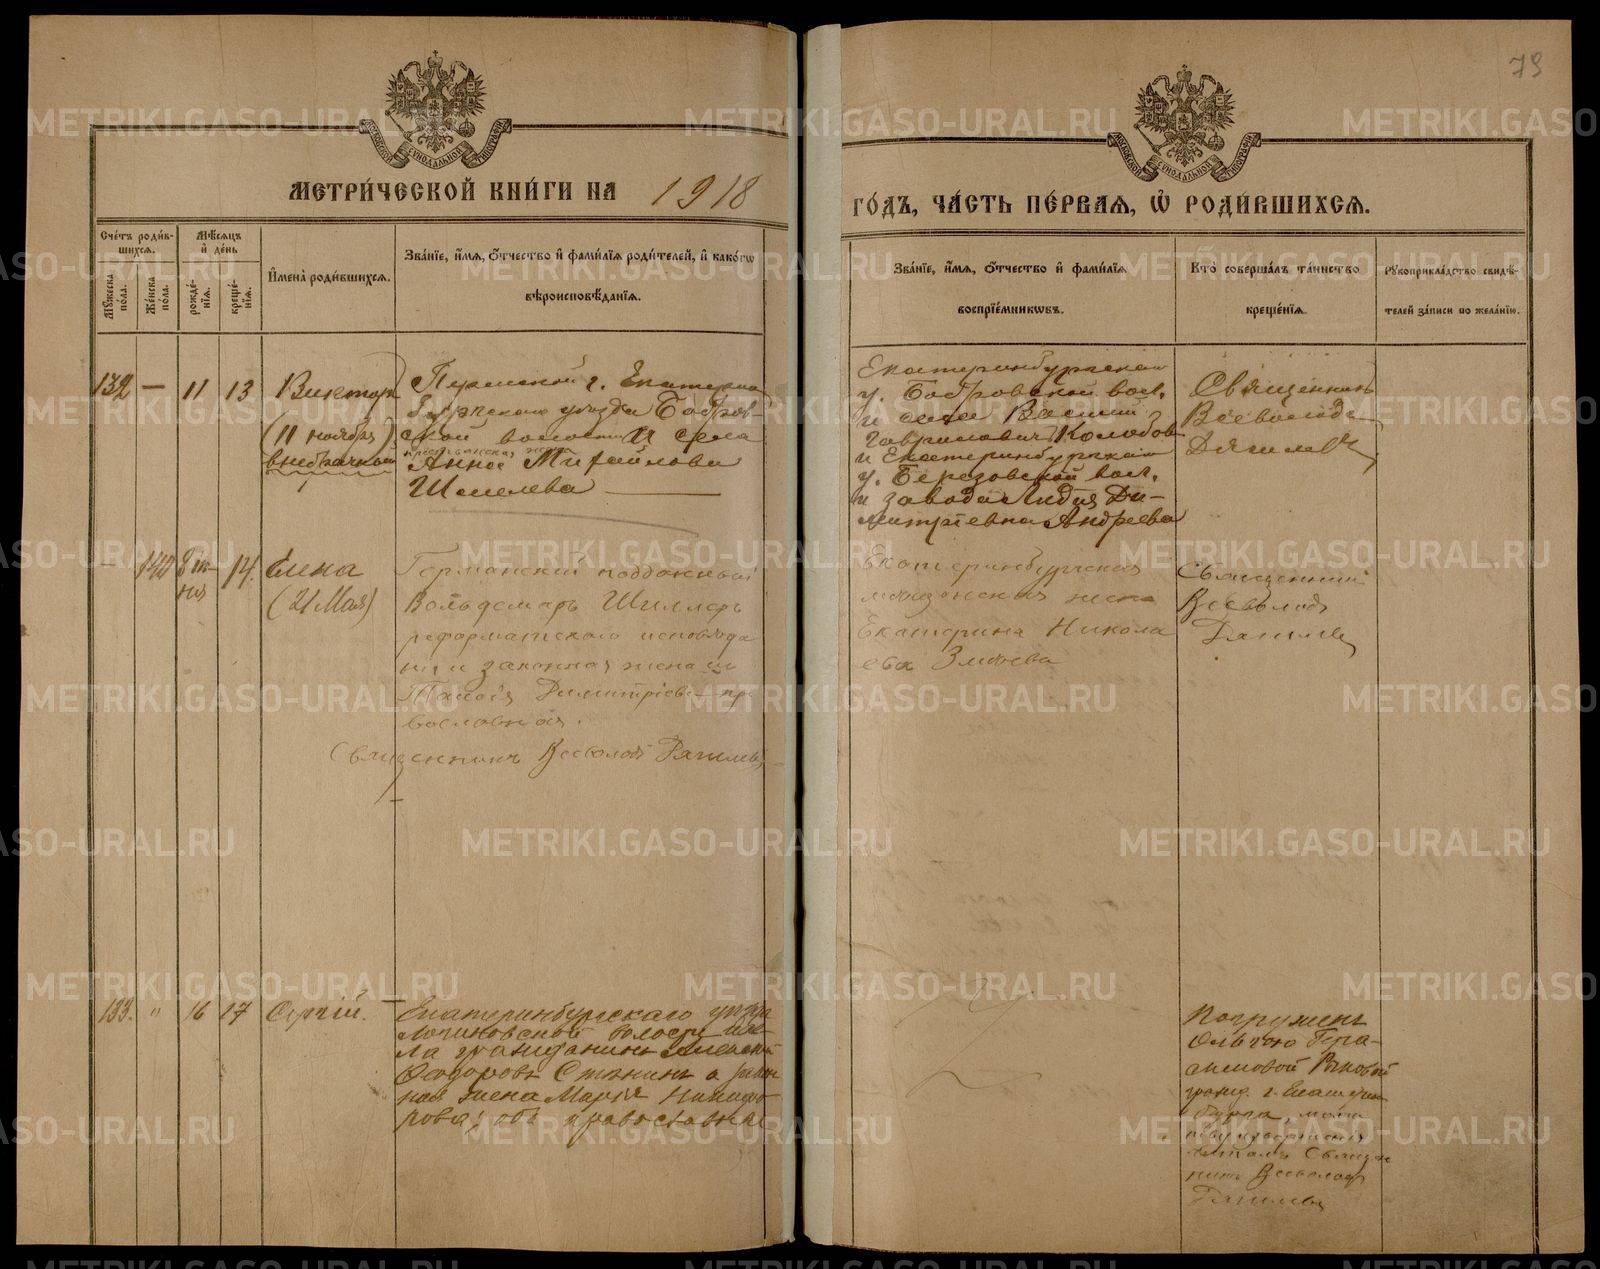 79
МОСКОВСКОЙ СѴНОДАЛЬНОЙ ТИПОГРАФІИ
МОСКОВСКОЙ СѴНОДАЛЬНОЙ ТИПОГРАФІИ
МЕТРИ́ЧЕСКОЙ КНИ́ГИ НА 1918
ГО́ДЪ, ЧА́СТЬ ПЕ́РВАЯ, Ѿ РОДИ́ВШИХСЯ.
Сче́тъ роди́в-
шихся.
Мꙋ́жеска
по́ла.
Же́нска
по́ла.
Мѣ́сяцъ
и҆ де́нь
рожде́-
нїя.
креще́-
нїя.
И҆мена̀ роди́вшихся.
Зва́нїе, и҆́мя, о҆́тчество и҆ фами́лїя роди́телей, и҆ како́гѡ
вѣроисповѣ́данїя.
Зва́нїе, и҆́мя, о҆́тчество и҆ фами́лїя
воспрїе́мникѡвъ.
Кто̀ соверша́лъ та́инство
креще́нїя.
Рꙋкоприкла́дство свидѣ́-
телей за́писи по жела́нїю.
132 — 11 13
Викторъ
(11 ноября)
внебрачной
Пермской г. Екатерин
бургскаго уѣзда Бобров-
ской волости и села
крестьянская жена
Анна Михайлова
Шмелева
Екатеринбургскаго
у. Бобровской вол.
и села Василій
Гавриловичъ Колобов
и Екатеринбургскаго
у. Березовской вол.
и завода Лидія Ди-
митріевна Андреева
Священникъ
Всеволодъ
Дягилевъ
14.
Елена
(21 Мая)
Германскій подданный
Вольдемаръ Шиллеръ
реформатскаго исповѣда
нія и законная жена его
Димитріева — пра
вославная.
Священникъ Всеволодъ Дягилевъ
Екатеринбургская
мѣщанская жена
Екатерина Никола
ева Змѣева
Священникъ
Всеволодъ
Дягилевъ
133. " 16 17
Сергій.
Екатеринбургскаго уѣзда
Логиновской волости се-
ла гражданинъ Алексѣй
Ѳедоровъ Стянинъ и закон
ная жена Марія Никифо
рова; оба православные
Погруженъ
Ольгою Гера-
симовой
гражд. г. Екатерин
бурга,
Священ
никъ Всеволодъ
Дягилевъ
METRIKI.GASO-URAL.RU